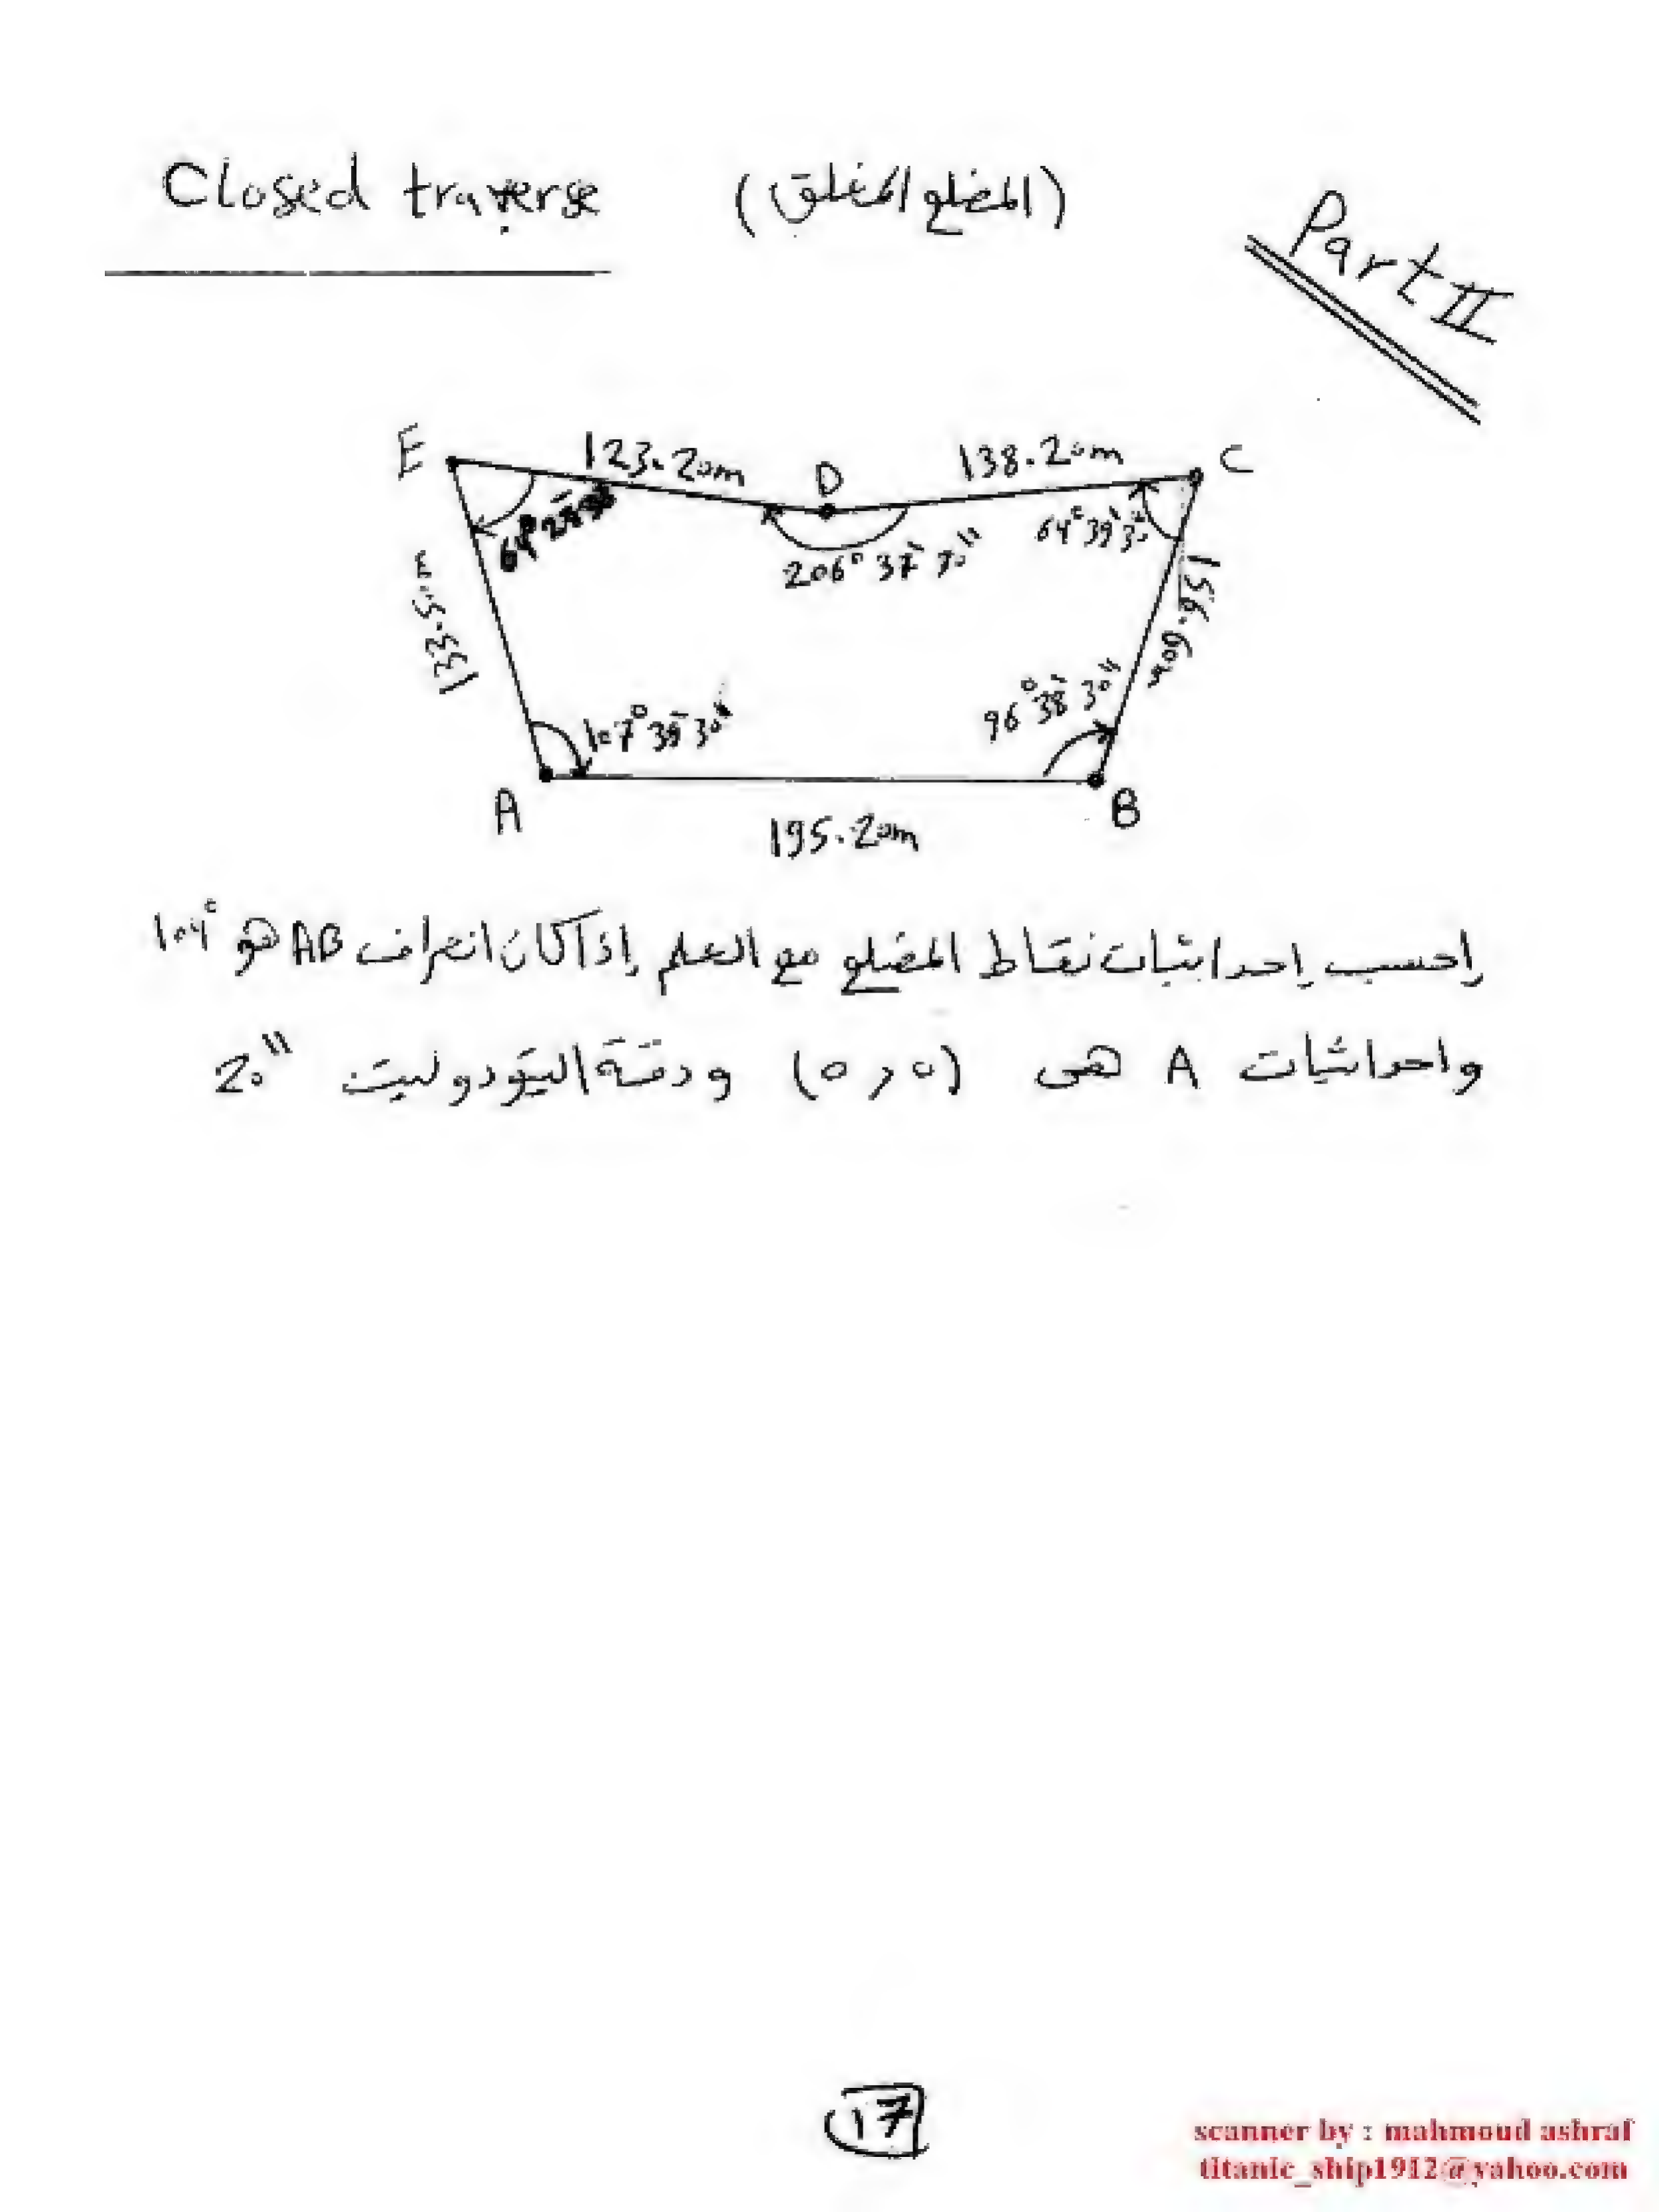 Closed traverse (المضلع المغلق)
Part II
E
123.20m
D
138.20m
C
206° 37'
64° 39' 30"
133.50m
156.60m
107° 39' 30"
96° 38' 30"
A
B
195.20m
احسب إحداثيات نقاط المضلع مع العلم إذا كان انحراف AB هو 104°
واحداثيات A هى (0, 0) ودقة التيودوليت 20"
17
scanner by : mahmoud ashraf
titanic_ship1912@yahoo.com